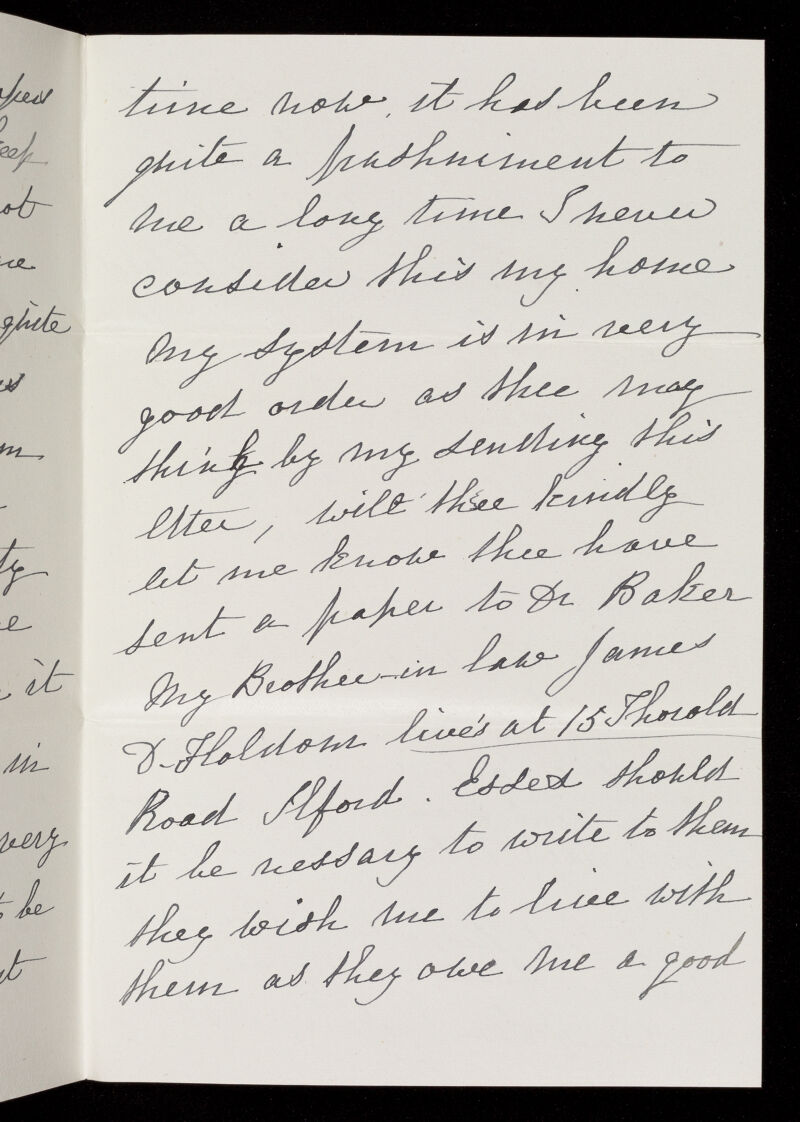 time now, it has been
quite a pushniment to
me a long time I never
consider this my home
My system is in very
good order as thee may
think by my sending this
letter, will thee kindly
let me know thee have
sent a paper to Dr Baker
My Brother-in law James
D. Holdom live's at 15 Thorold
Road Ilford. Essex should
it be nessary to write to them
they wish me to live with
them as they owe me a good
keep
ot
quite
m
ty
e
it
in
very
to be